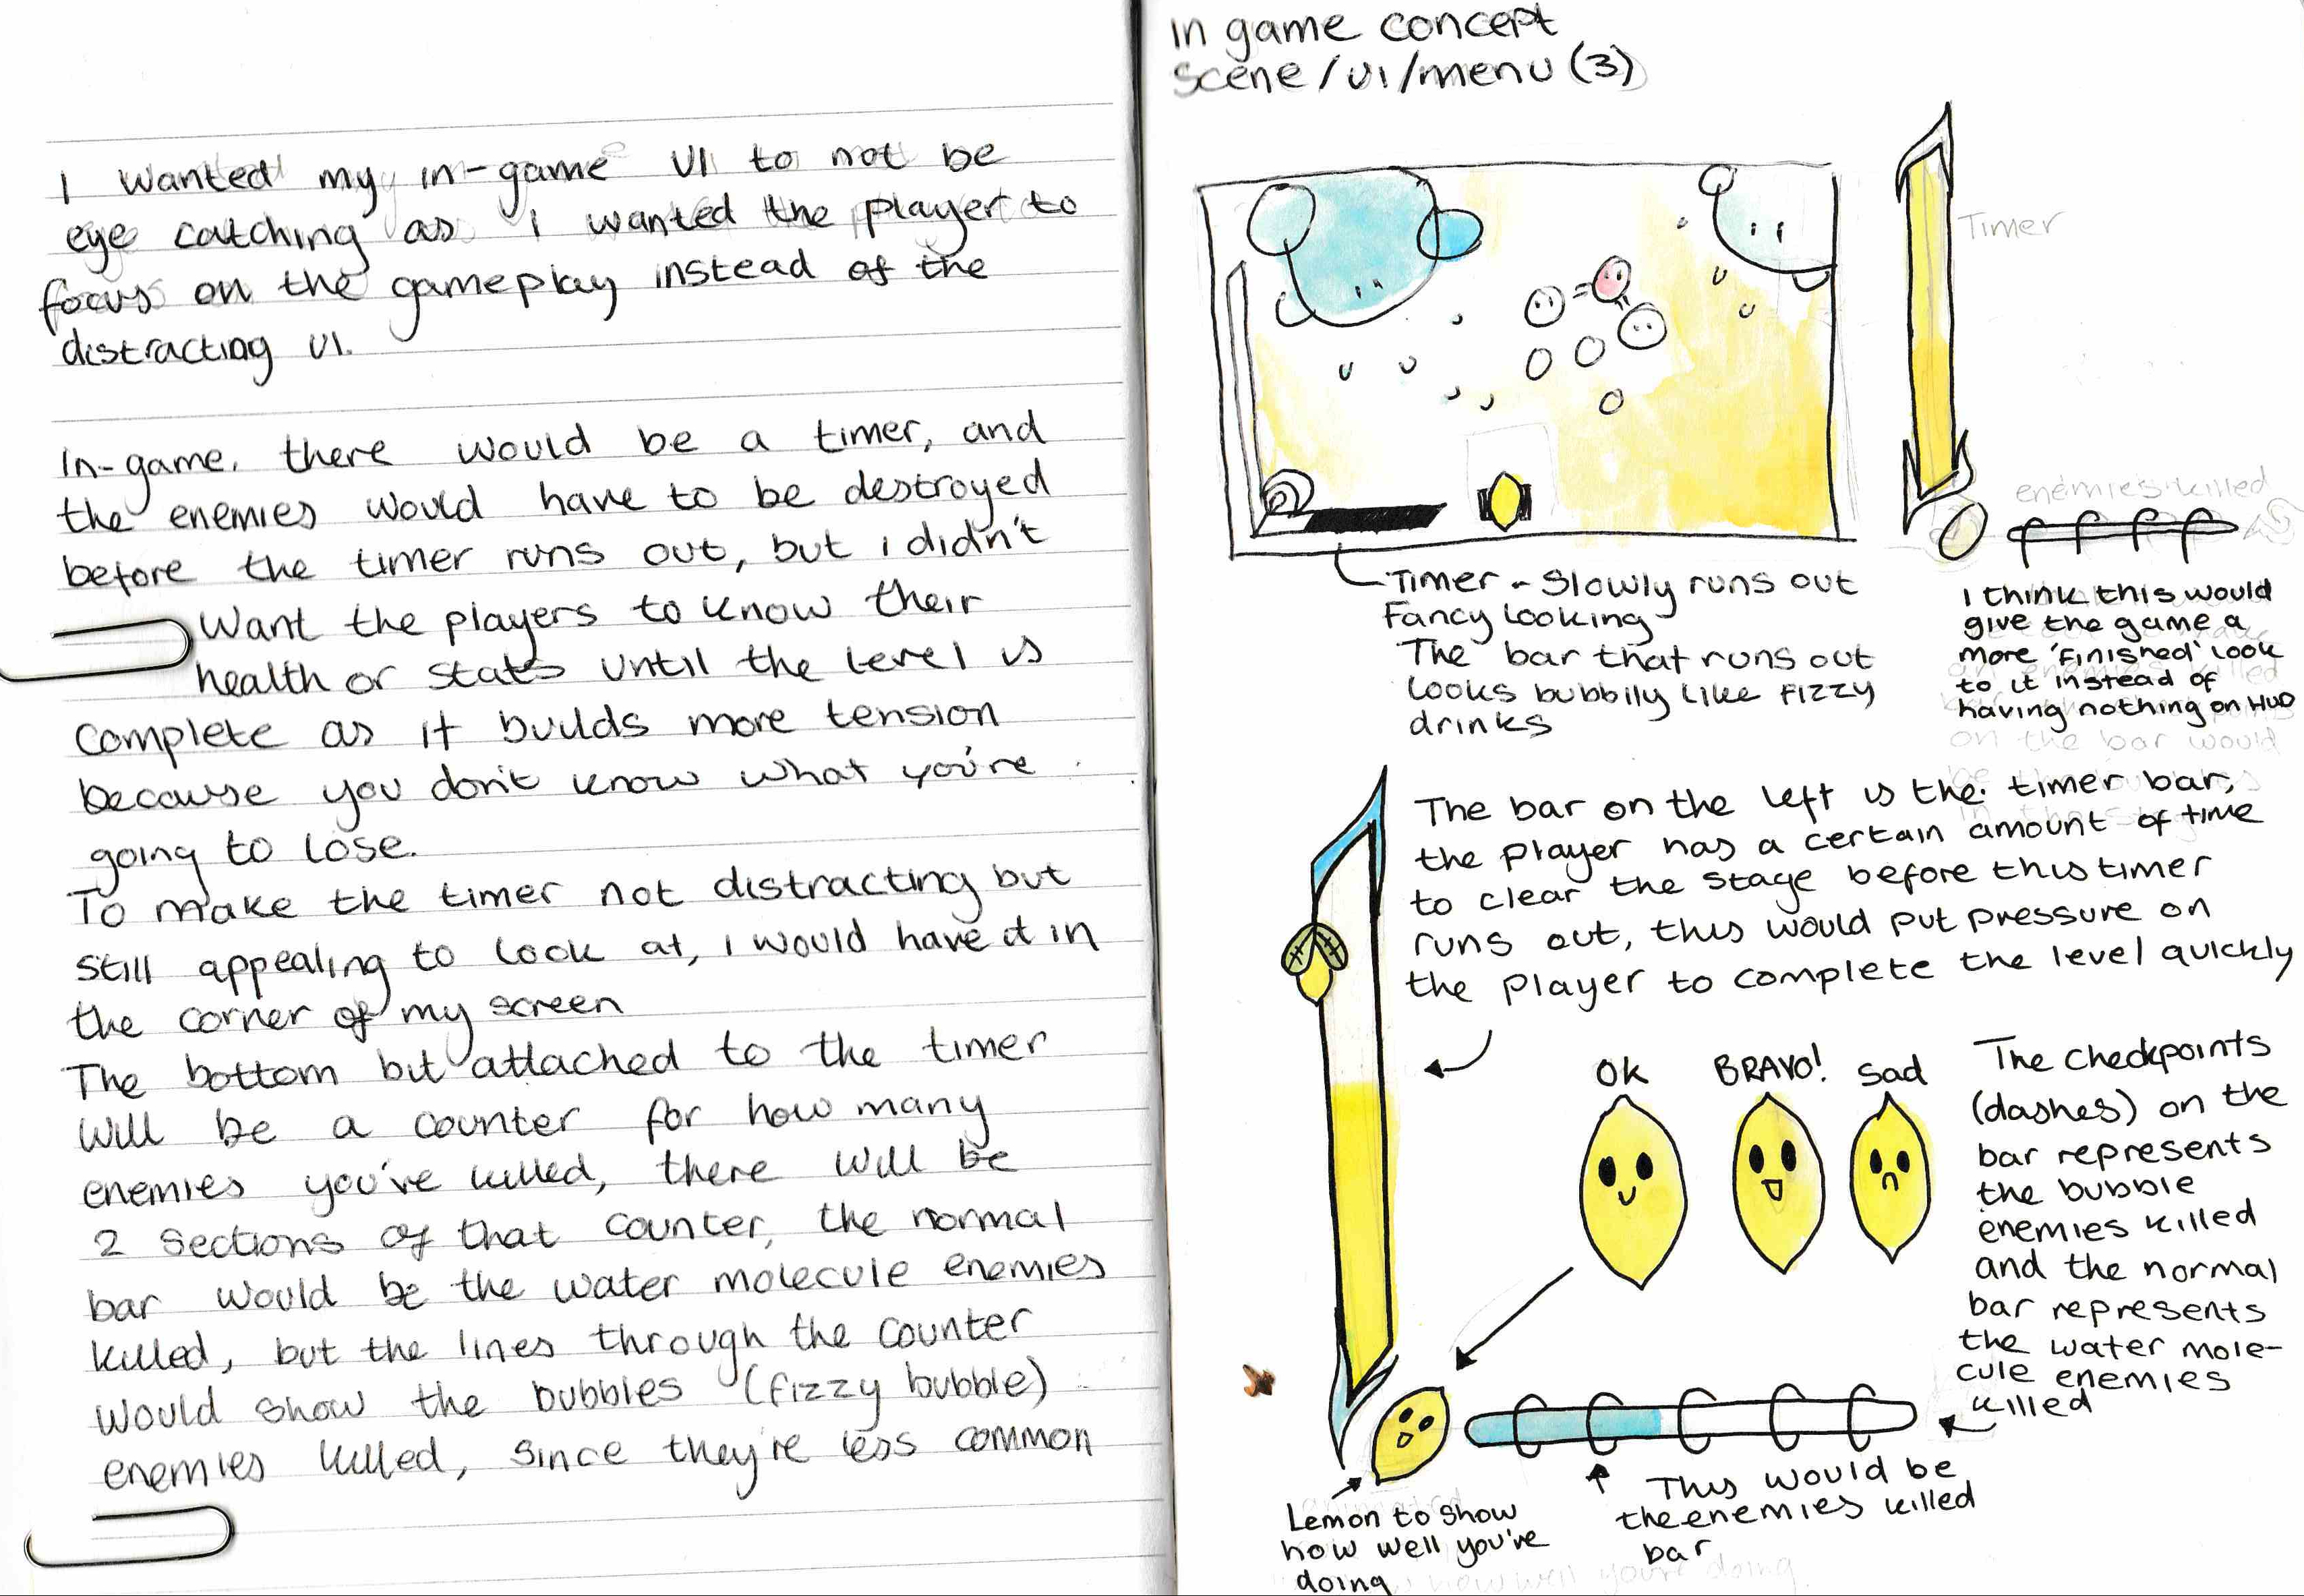 I wanted my in-game UI to not be
eye catching as I wanted the player to
focus on the gameplay instead of the
distracting UI.
In-game, there would be a timer, and
the enemies would have to be destroyed
before the timer runs out, but i didn't
Want the players to know their
health or stats until the level is
complete as it builds more tension
because you don't know what you're
going to lose.
To make the timer not distracting but
still appealing to look at, I would have it in
the corner of my screen
The bottom bit attached to the timer
will be a counter for how many
enemies you've killed, there will be
2 sections of that counter, the normal
bar would be the water molecule enemies
killed, but the lines through the counter
would show the bubbles (fizzy bubble)
enemies killed, since they're less common
In game concept
Scene/UI/menu (3)
Timer
enemies killed
Timer - Slowly runs out
Fancy looking
The bar that runs out
looks bubbily like fizzy
drinks
I think this would
give the game a
more 'finished' look
to it instead of
having nothing on HUD
on the bar would
The bar on the left is the timer bar,
the player has a certain amount of time
to clear the stage before this timer
runs out, this would put pressure on
the player to complete the level quickly
OK
BRAVO!
Sad
The checkpoints
(dashes) on the
bar represents
the bubble
enemies killed
and the normal
bar represents
the water mole-
cule enemies
killed
This would be
the enemies killed
bar
Lemon to show
how well you're
doing
how well you're doing